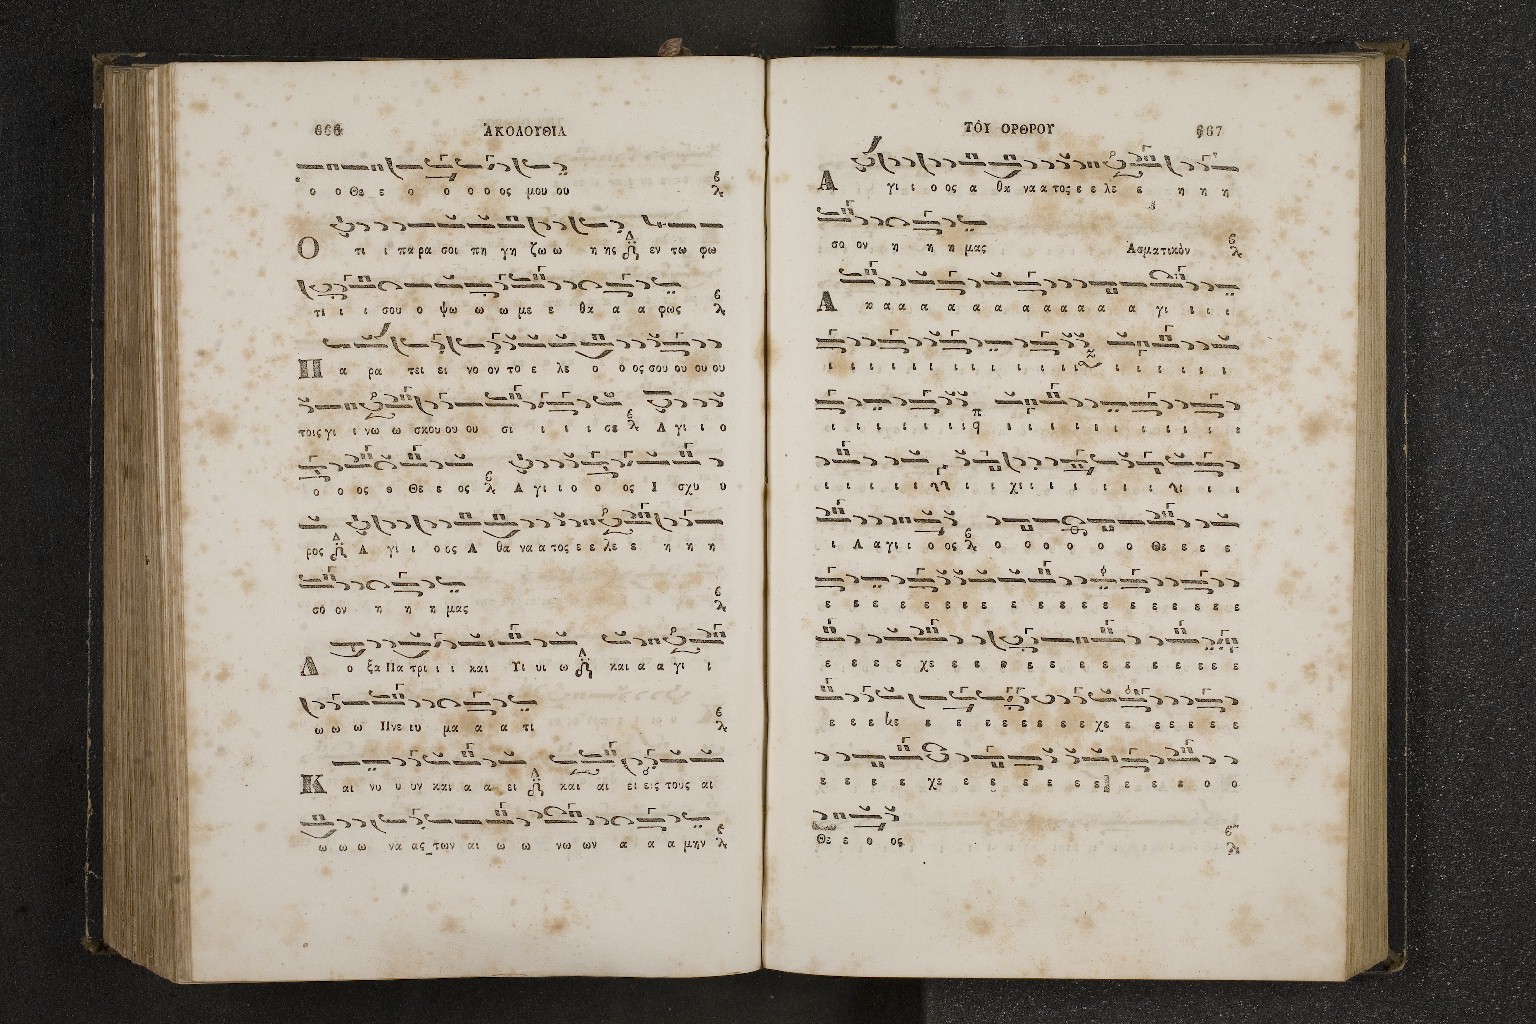 666 ἈΚΟΛΟΥΘΙΑ
ο ο Θε ε ο ο ο ο ος μου ου
Ο τι ι πα ρα σοι πη γη ζω ω η ης εν τω φω
τι ι ι σου ο ψω ω ω με ε θα α α φως
Π α ρα τει ει νο ον το ε λε ο ο ος σου ου ου ου
τοις γι ι νω ω σκου ου ου σι ι ι ι σε Α γι ι ο
ο ο ος ο Θε ε ος Α γι ι ο ο ος Ι σχυ υ
ρος Α γι ι ο ος Α θα να α τος ε ε λε ε η η η
σο ον η η η μας
Δ ο ξα Πα τρι ι ι και Υι υι ω και α α γι ι
ω ω ω Πνε ευ μα α α α τι
Κ αι νυ υ υν και α α ει και αι ει εις τους αι
ω ω ω να ας των αι ω ω νω ων α α α μην
ΤΟΥ ΟΡΘΡΟΥ 667
Α γι ι ο ος α θα να α τος ε ε λε ε η η η
σο ον η η η μας Ἀσματικὸν
Α α α α α α α α α α α α α γι ι ι ι
ι ι ι ι ι ι ι ι ι ι ι ι ι ι ι ι ι ι
ι ι ι ι ι ι ι ι ι ι ι ι ι ι ι ι ι
ι ι ι ι ι ι ι ι χι ι ι ι ι ι ι ι ι
ι Α α γι ι ο ος ο ο ο ο ο ο Θε ε ε ε
ε ε ε ε ε ε ε ε ε ε ε ε ε ε ε ε ε ε ε
ε ε ε ε χε ε ε ε ε ε ε ε ε ε ε ε ε
ε ε ε ε ε ε ε ε ε ε ε χε ε ε ε ε ε ε
ε ε ε ε χε ε ε ε ε ε ε ε ε ε ε ο ο
Θε ε ο ος